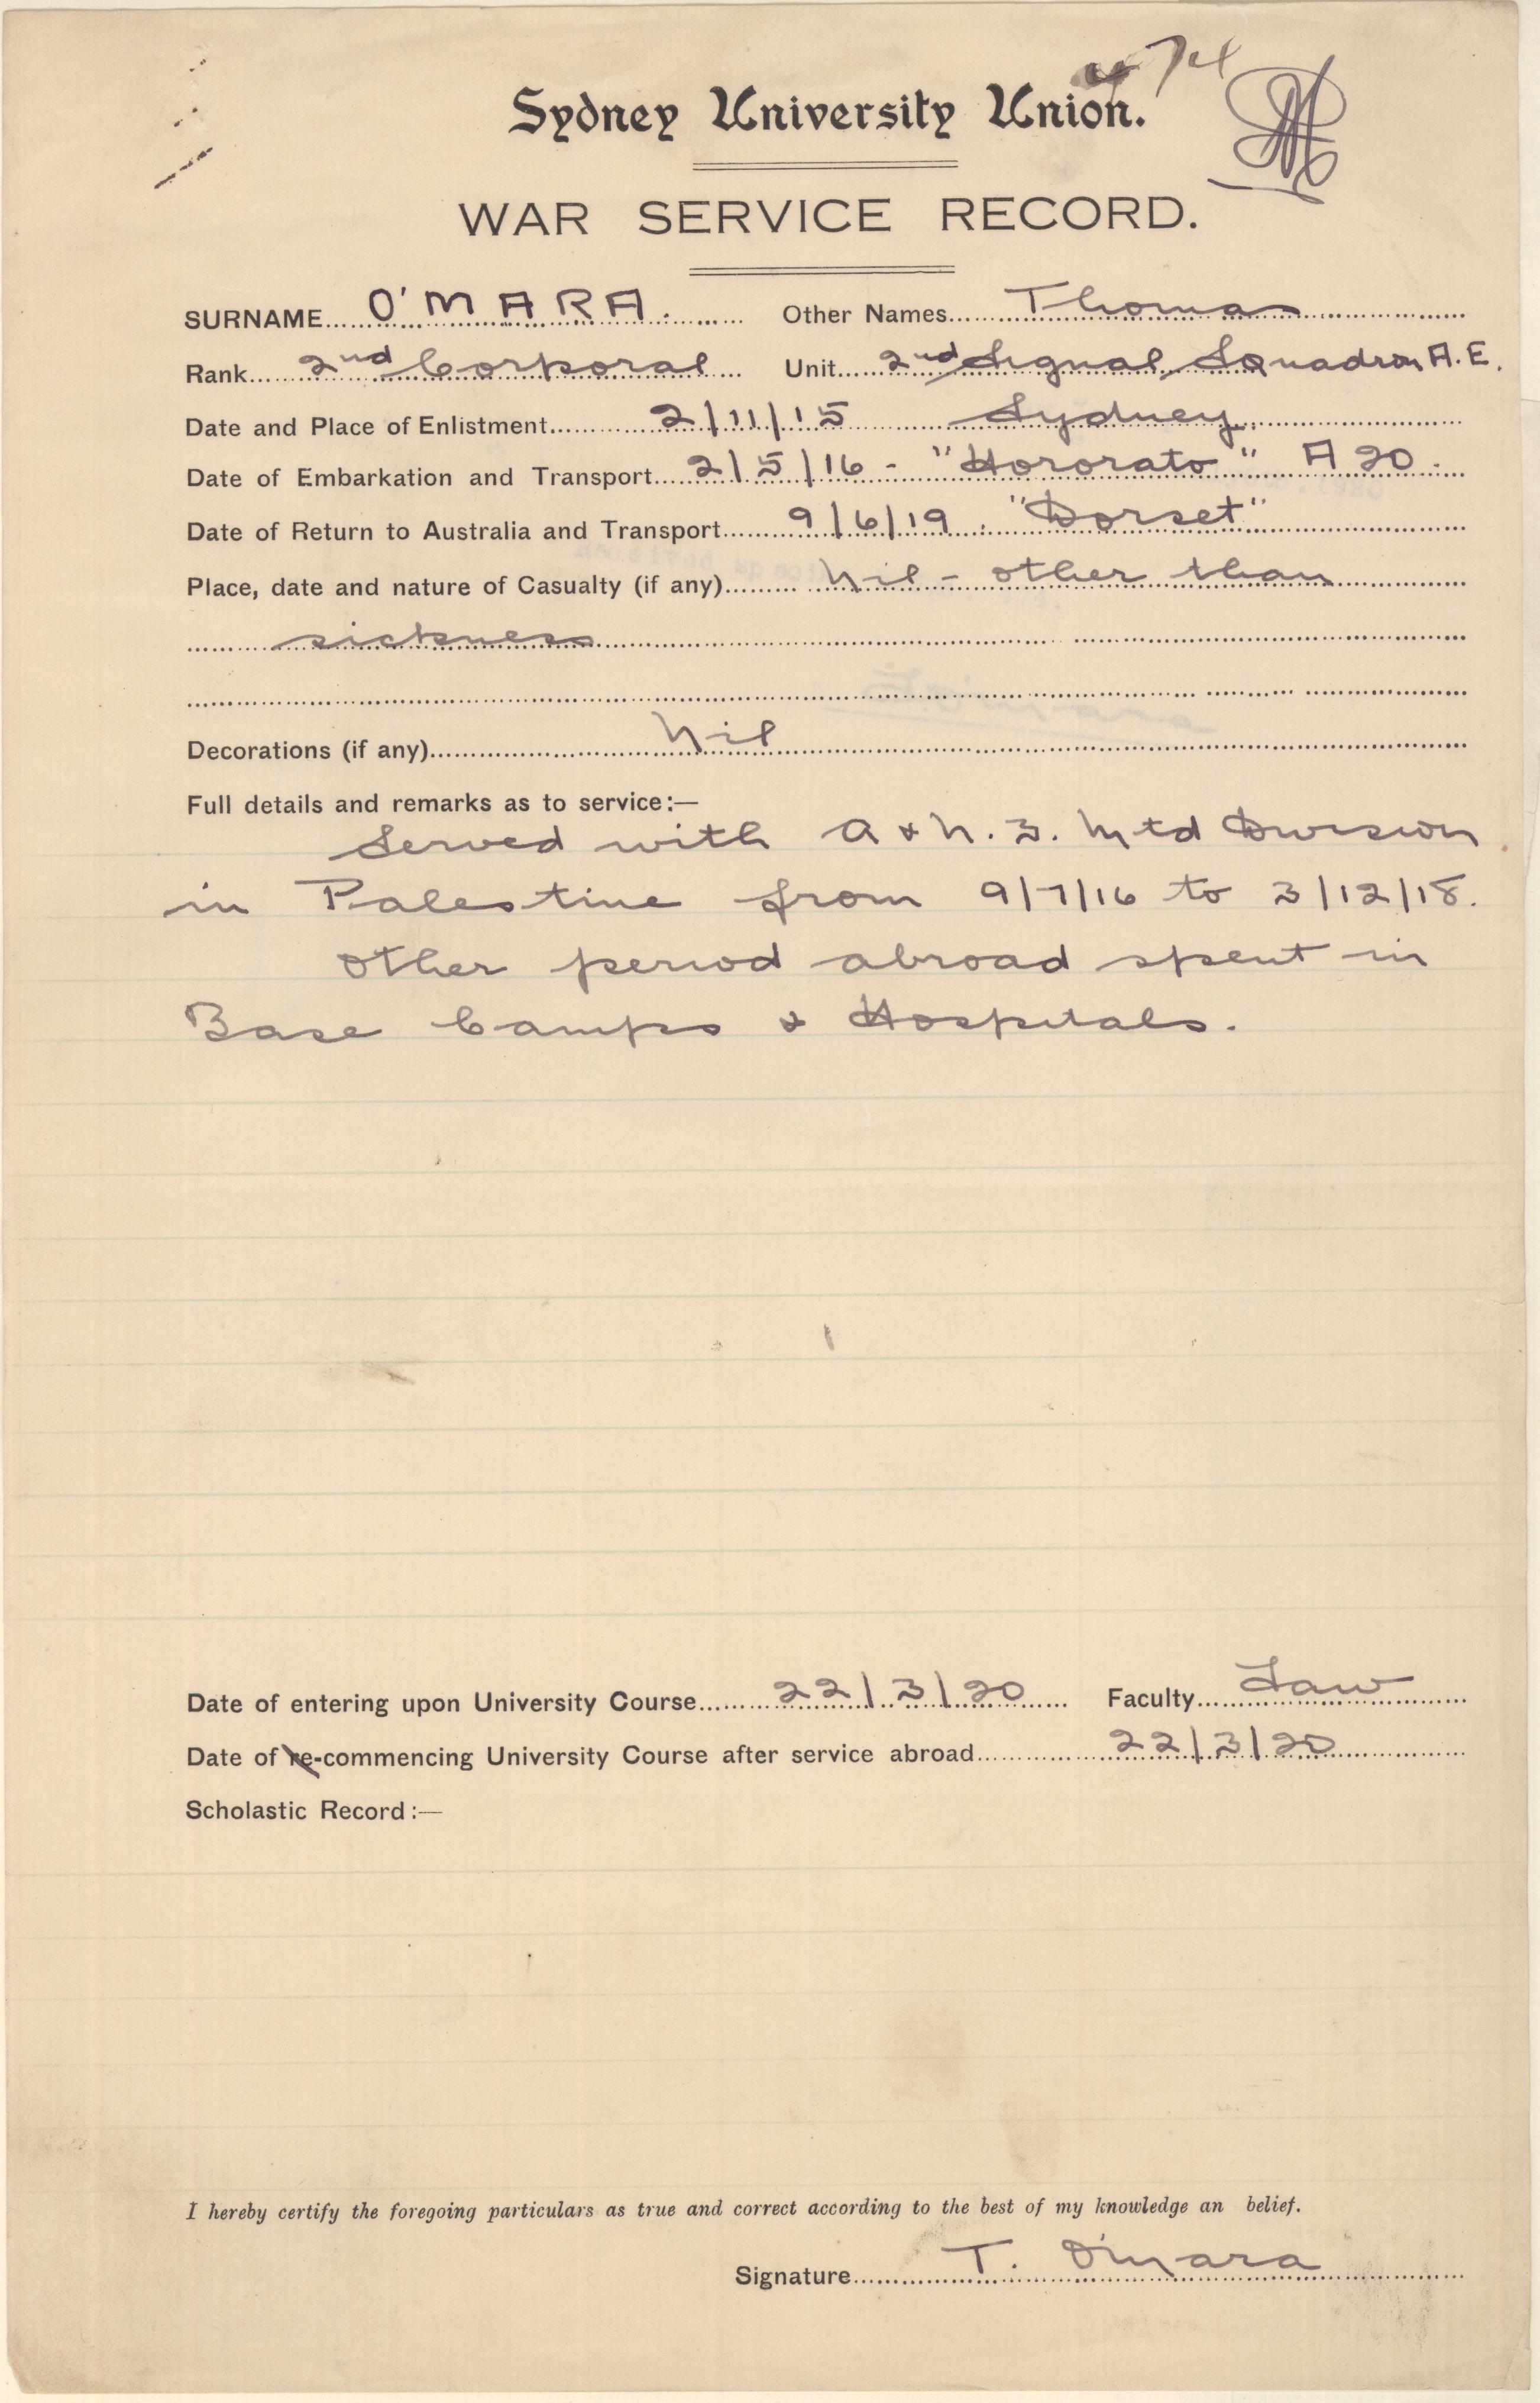 Sydney University Union.
WAR SERVICE RECORD.
SURNAME O'MARA. Other Names Thomas
Rank 2nd Corporal Unit 2nd Signal Squadron A.E.
Date and Place of Enlistment 2/11/15 Sydney
Date of Embarkation and Transport 2/5/16 - "Hororata" A 20.
Date of Return to Australia and Transport 9/6/19. "Dorset"
Place, date and nature of Casualty (if any) Nil - other than
sickness
Decorations (if any) Nil
Full details and remarks as to service:—
Served with A & N. Z. Mtd Division
in Palestine from 9/7/16 to 3/12/18.
Other period abroad spent in
Base Camps & Hospitals.
Date of entering upon University Course 22/3/20 Faculty Law
Date of re-commencing University Course after service abroad 22/3/20
Scholastic Record:—
I hereby certify the foregoing particulars as true and correct according to the best of my knowledge an belief.
Signature T. O'Mara